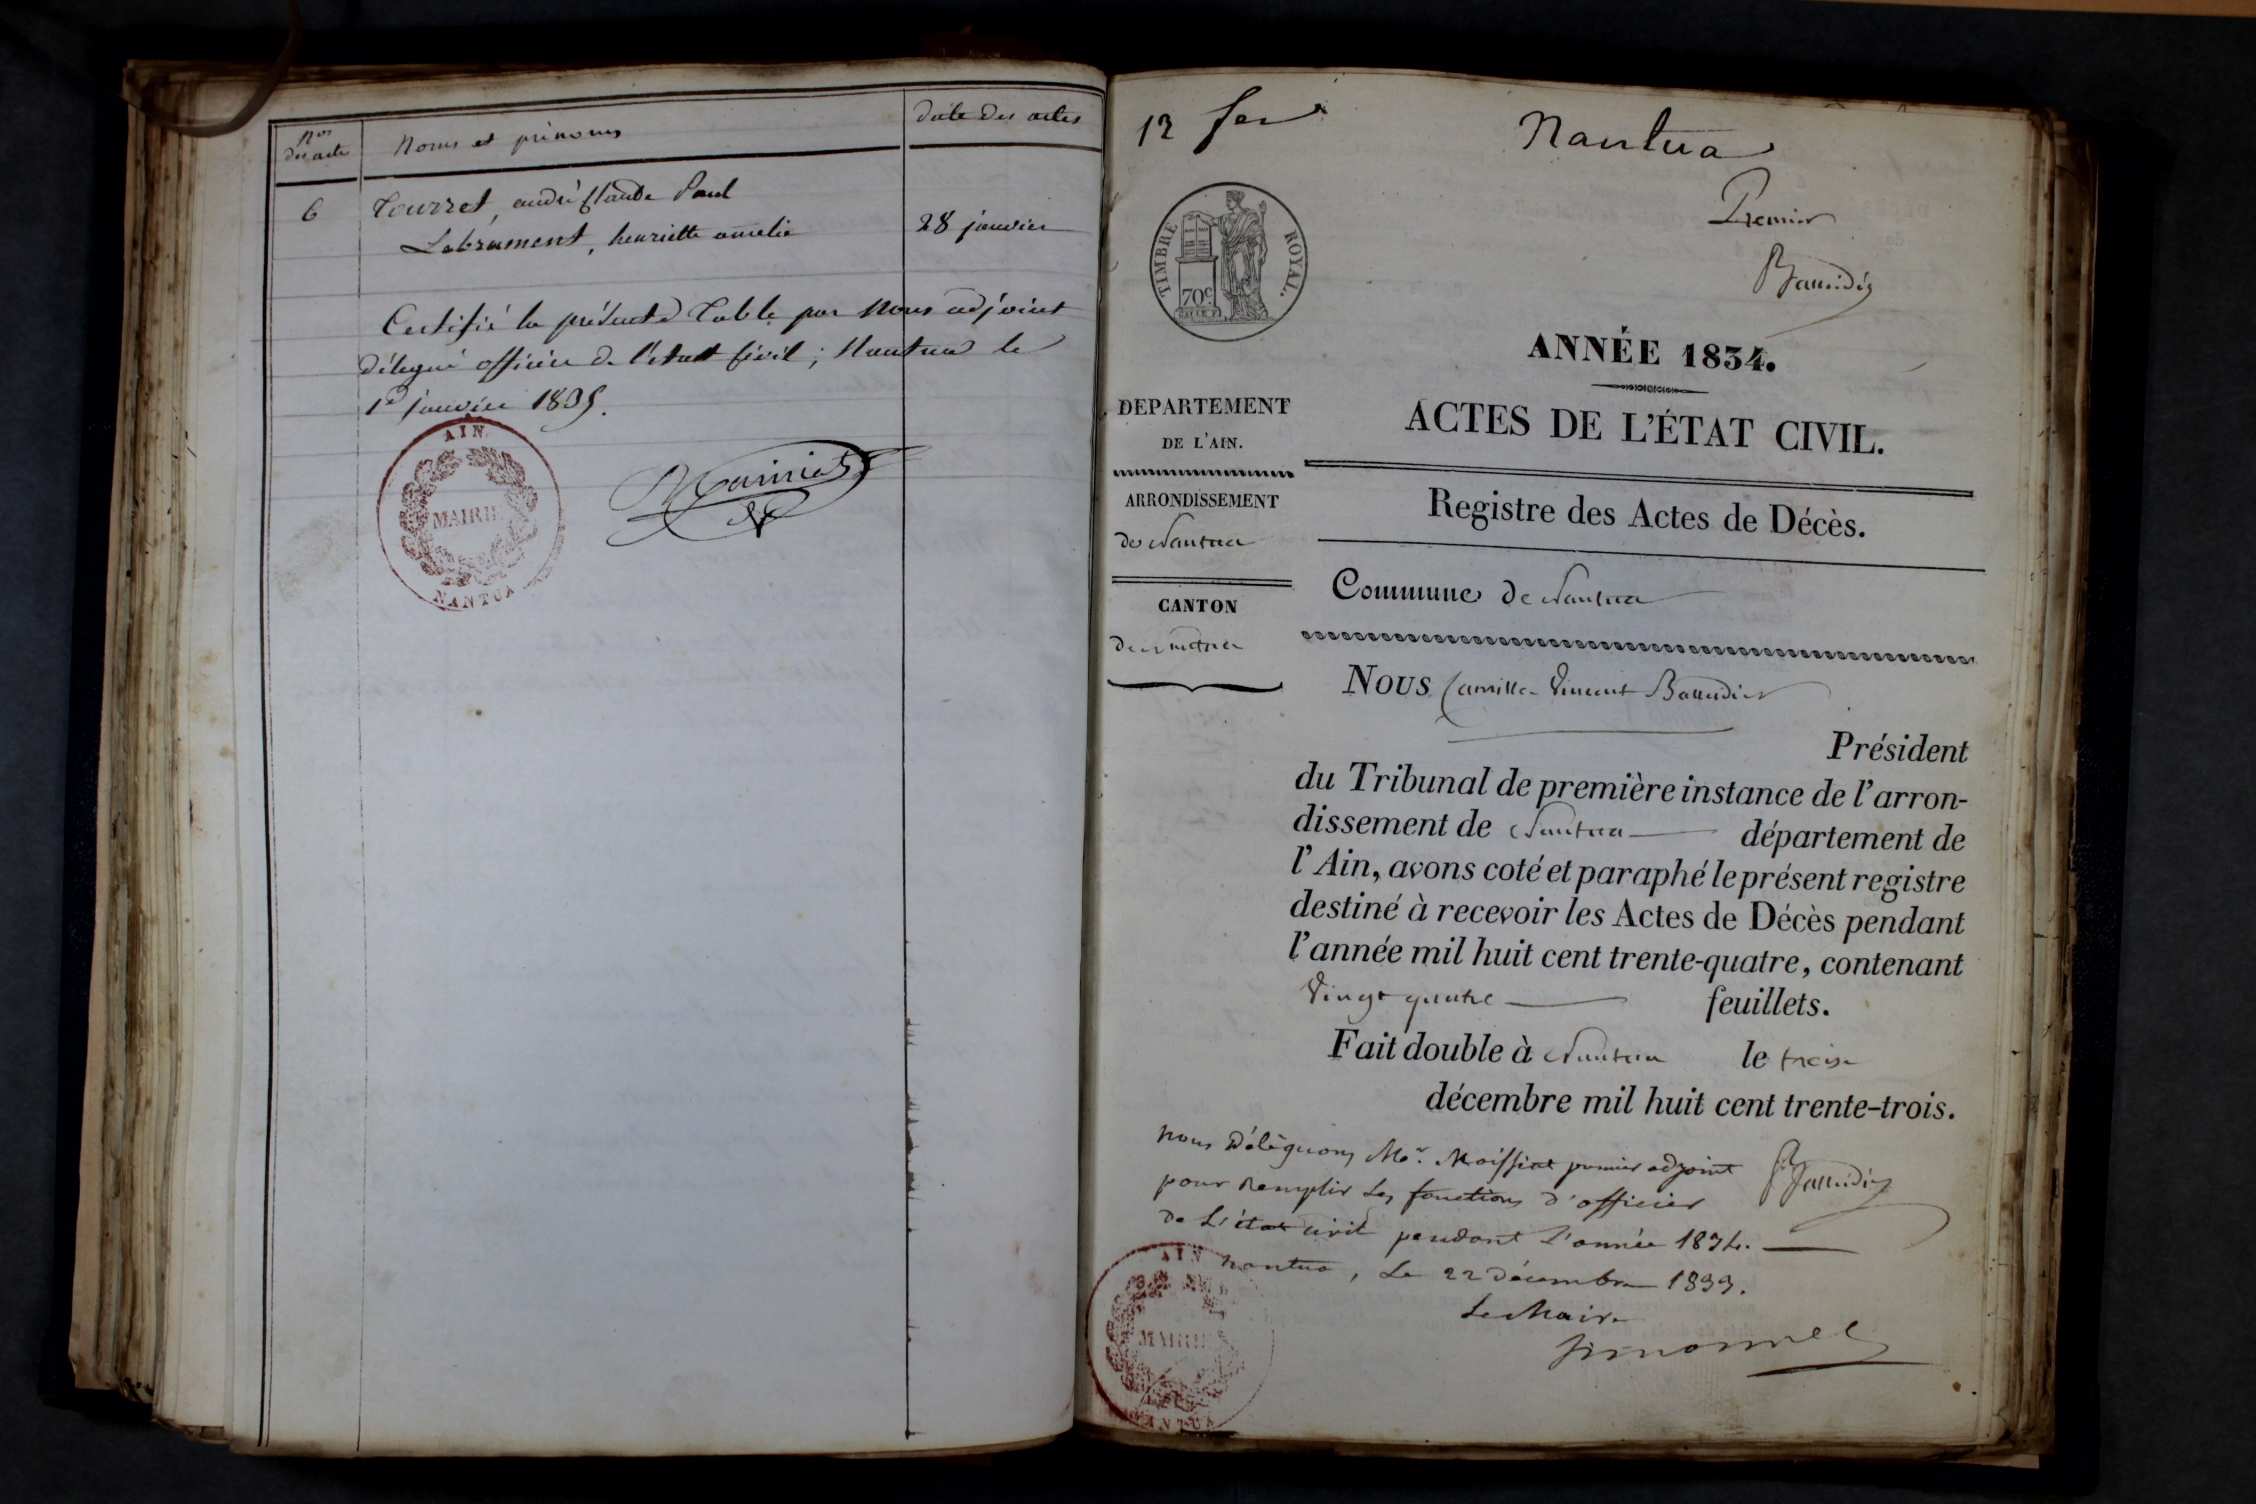 Nos des acte
Noms et prénoms
date des actes
6
Tourret, andré Claude Paul
Labrument, henriette amélie
28 janvier
Certifié la présente Table par Nous adjoint
délégué officier de l'état Civil ; Nantua le
1er janvier 1835.
AIN
MAIRIE
NANTUA
12 fer
Nantua
Premier
TIMBRE ROYAL.
70c
ANNÉE 1834.
DEPARTEMENT
DE L'AIN.
ARRONDISSEMENT
de Nantua
CANTON
de Nantua
ACTES DE L'ÉTAT CIVIL.
Registre des Actes de Décès.
Commune de Nantua
Nous Camille Vincent Baudier
Président
du Tribunal de première instance de l'arron-
dissement de Nantua département de
l'Ain, avons coté et paraphé le présent registre
destiné à recevoir les Actes de Décès pendant
l'année mil huit cent trente-quatre, contenant
Vingt quatre feuillets.
Fait double à Nantua le treize
décembre mil huit cent trente-trois.
nous Déléguons Mr. Moissiat premier adjoint
pour Remplir Les fonctions d'officier
de L'état civil pendant L'année 1834.
Nantua, Le 22 décembre 1833.
Le Maire
AIN
MAIRIE
NANTUA